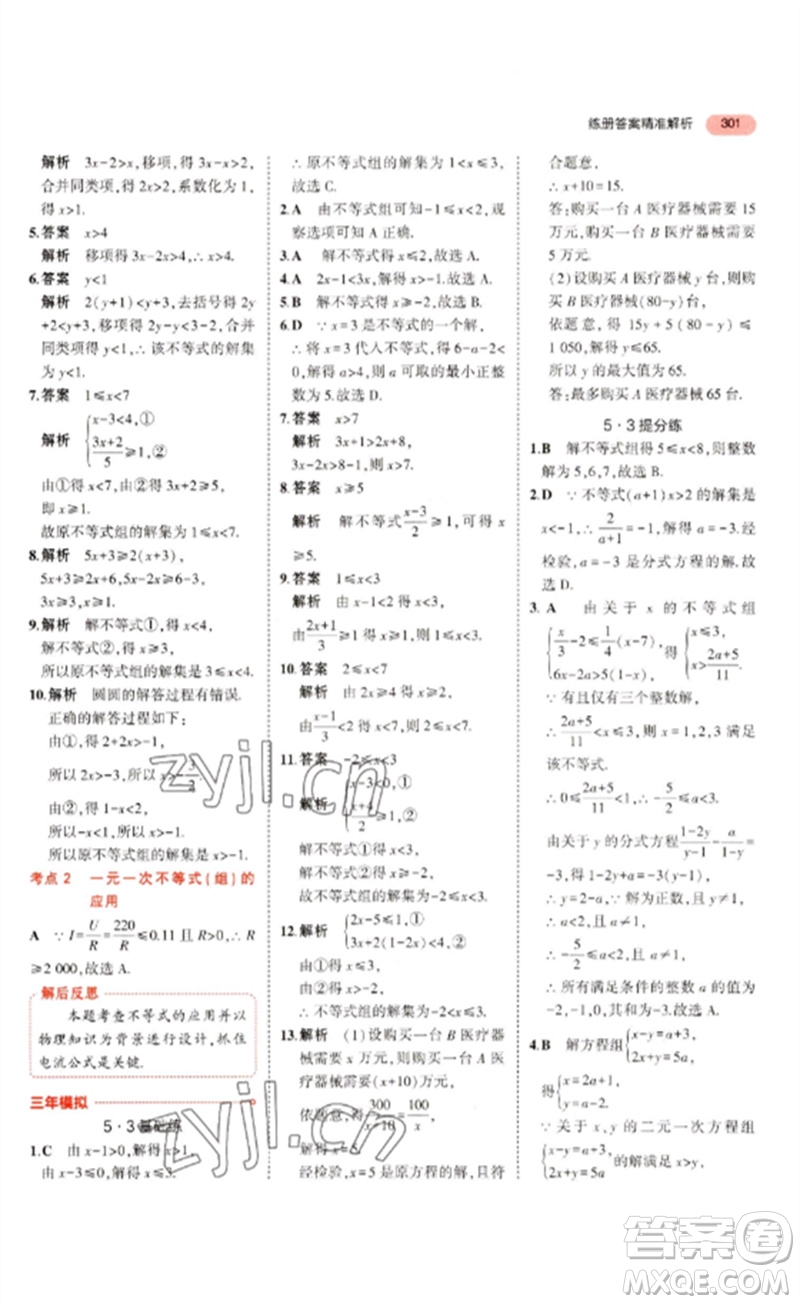 练册答案精准解析 301
解析 3x-2>x,移项,得3x-x>2,
合并同类项,得2x>2,系数化为1,
得x>1.
5.答案 x>4
解析 移项得3x-2x>4,∴x>4.
6.答案 y<1
解析 2(y+1)<y+3,去括号得2y
+2<y+3,移项得2y-y<3-2,合并
同类项得y<1,∴该不等式的解集
为y<1.
7.答案 1≤x<7
解析 {x-3<4,①
(3x+2)/5≥1,②
由①得x<7,由②得x≥1,
即x≥1.
故原不等式组的解集为1≤x<7.
8.解析 5x+3≥2(x+3),
5x+3≥2x+6,5x-2x≥6-3,
3x≥3,x≥1.
9.解析 解不等式①,得x<4,
解不等式②,得x>1,
∴原不等式组的解集是1<x<4.
10.解析 圆圆的解答过程有错误.
正确的解答过程如下:
由①,得2+2x>-1,
所以2x>-3,所以x>-3/2.
由②,得1-x<2,
所以-x<1,所以x>-1.
所以原不等式组的解集是x>-1.
考点2 一元一次不等式(组)的
应用
A ∵I=U/R=220/R≤0.11且R>0,∴R
≥2 000,故选A.
解后反思
本题考查不等式的应用并以
物理知识为背景进行设计,抓住
电流公式是关键.
三年模拟
5·3基础练
1.C 由x-1>0,解得x>1,
由x-3≤0,解得x≤3.
∴原不等式组的解集为1<x≤3,
故选C.
2.A 由不等式组可知-1≤x<2,观
察选项可知A正确.
3.A 解不等式得x≤2,故选A.
4.A 2x-1<3x,解得x>-1.故选A.
5.B 解不等式得x≥-2,故选B.
6.D ∵x=3是不等式的一个解,
∴将x=3代入不等式,得6-a-2<
0,解得a>4,则a可取的最小正整
数为5.故选D.
7.答案 x>7
解析 3x+1>2x+8,
3x-2x>8-1,∴x>7.
8.答案 x≥5
解析 解不等式(x-3)/2≥1,可得x
≥5.
9.答案 1≤x<3
解析 由x-1<2得x<3,
由(2x+1)/3≥1得x≥1,∴1≤x<3.
10.答案 2≤x<7
解析 由x-2≥0得x≥2,
由(x-1)/3<2得x<7,∴2≤x<7.
11.答案 -2≤x<3
解析 {x-3<0,①
≥1,②
解不等式①得x<3,
解不等式②得x≥-2,
故不等式组的解集为-2≤x<3.
12.解析 {2x-5≤1,①
3x+2(1-2x)<4,②
解不等式①得x≤3,
解不等式②得x>-2,
∴不等式组的解集为-2<x≤3.
13.解析 (1)设购买一台B医疗器
械需要x万元,则购买一台A医
疗器械需要(x+10)万元,
依题意,得300/(x+10)=100/x,
解得x=5,
经检验,x=5是原方程的解,且符
合题意.
∴x+10=15.
答:购买一台A医疗器械需要15
万元,购买一台B医疗器械需要
5万元.
(2)设购买A医疗器械y台,则购
买B医疗器械(80-y)台,
依题意,得15y+5(80-y)≤
1 050,解得y≤65.
∴y的最大值为65.
答:最多购买A医疗器械65台.
5·3提分练
1.B 解不等式组得5≤x<8,则整数
解为5,6,7,故选B.
2.D ∵不等式(a+1)x>2的解集是
x<-1,∴2/(a+1)=-1,解得a=-3.经
检验,a=-3是分式方程的解.故
选D.
3.A 由关于x的不等式组
{x/3-2≤1/4(x-7),
6x-2a>5(1-x)
得{x≤3,
x>(2a+5)/11.
∵有且只有三个整数解,
∴(2a+5)/11<x≤3,则x取1,2,3满足
该不等式.
∴0≤(2a+5)/11<1,∴-5/2≤a<3.
由关于y的分式方程(1-2y)/(y-1)-a/(1-y)
=-3,得1-2y+a=-3(y-1),
∴y=2-a,∵解为正数,且y=1为
增根,
∴a<2,且a≠1,
∴-5/2≤a<2,且a≠1,
∴所有满足条件的整数a的值为
-2,-1,0,共3个,故选A.
4.B 解方程组{x-y=3a,
2x+y=5a,
得
∵关于x,y的二元一次方程组
{x-y=3a,
2x+y=5a
的解满足x>y,
zyjl.cn
zyjl.cn
答案圈
MXQE.COM